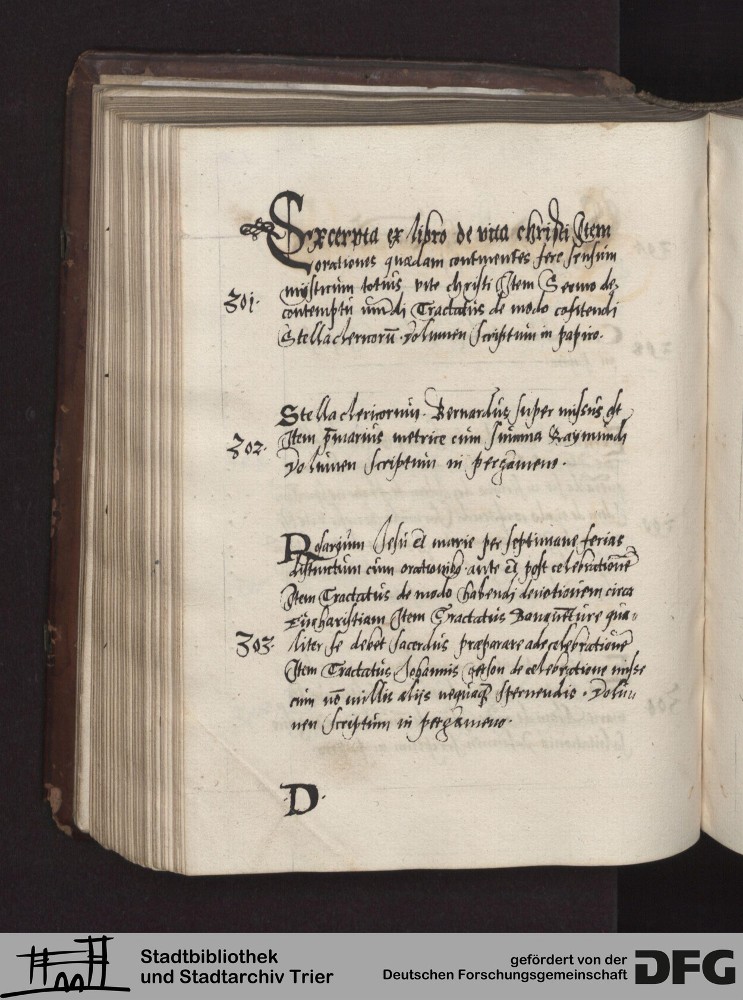 Excerpta ex libro de vita christi Item
orationes quædam continentes fere sensum
mysticum totius vite christi Item Sermo de
301. contemptu mūdi Tractatus de modo cōfitendi
Stella clericorū. Volumen scriptum in papiro.
Stella clericorum. Bernardus super missus est
302. Item p̄marius metrice cum summa Raymundi
Volumen scriptum in pergameno.
Rosarium Jesu et marie per septimane ferias
distinctum cum orationibꝫ ante et post celebrationē
Item Tractatus de modo habendi devotionem circa
Eucharistiam Item Tractatus Bonauēture qua„
303. liter se debet sacerdos præparare ad celebrationē
Item Tractatus Johannis gerson de celebratione misse
cum nō nullis alijs nequaqꝫ spernendis. Volu„
men scriptum in pergameno.
D.
Stadtbibliothek
und Stadtarchiv Trier
gefördert von der
Deutschen Forschungsgemeinschaft
DFG